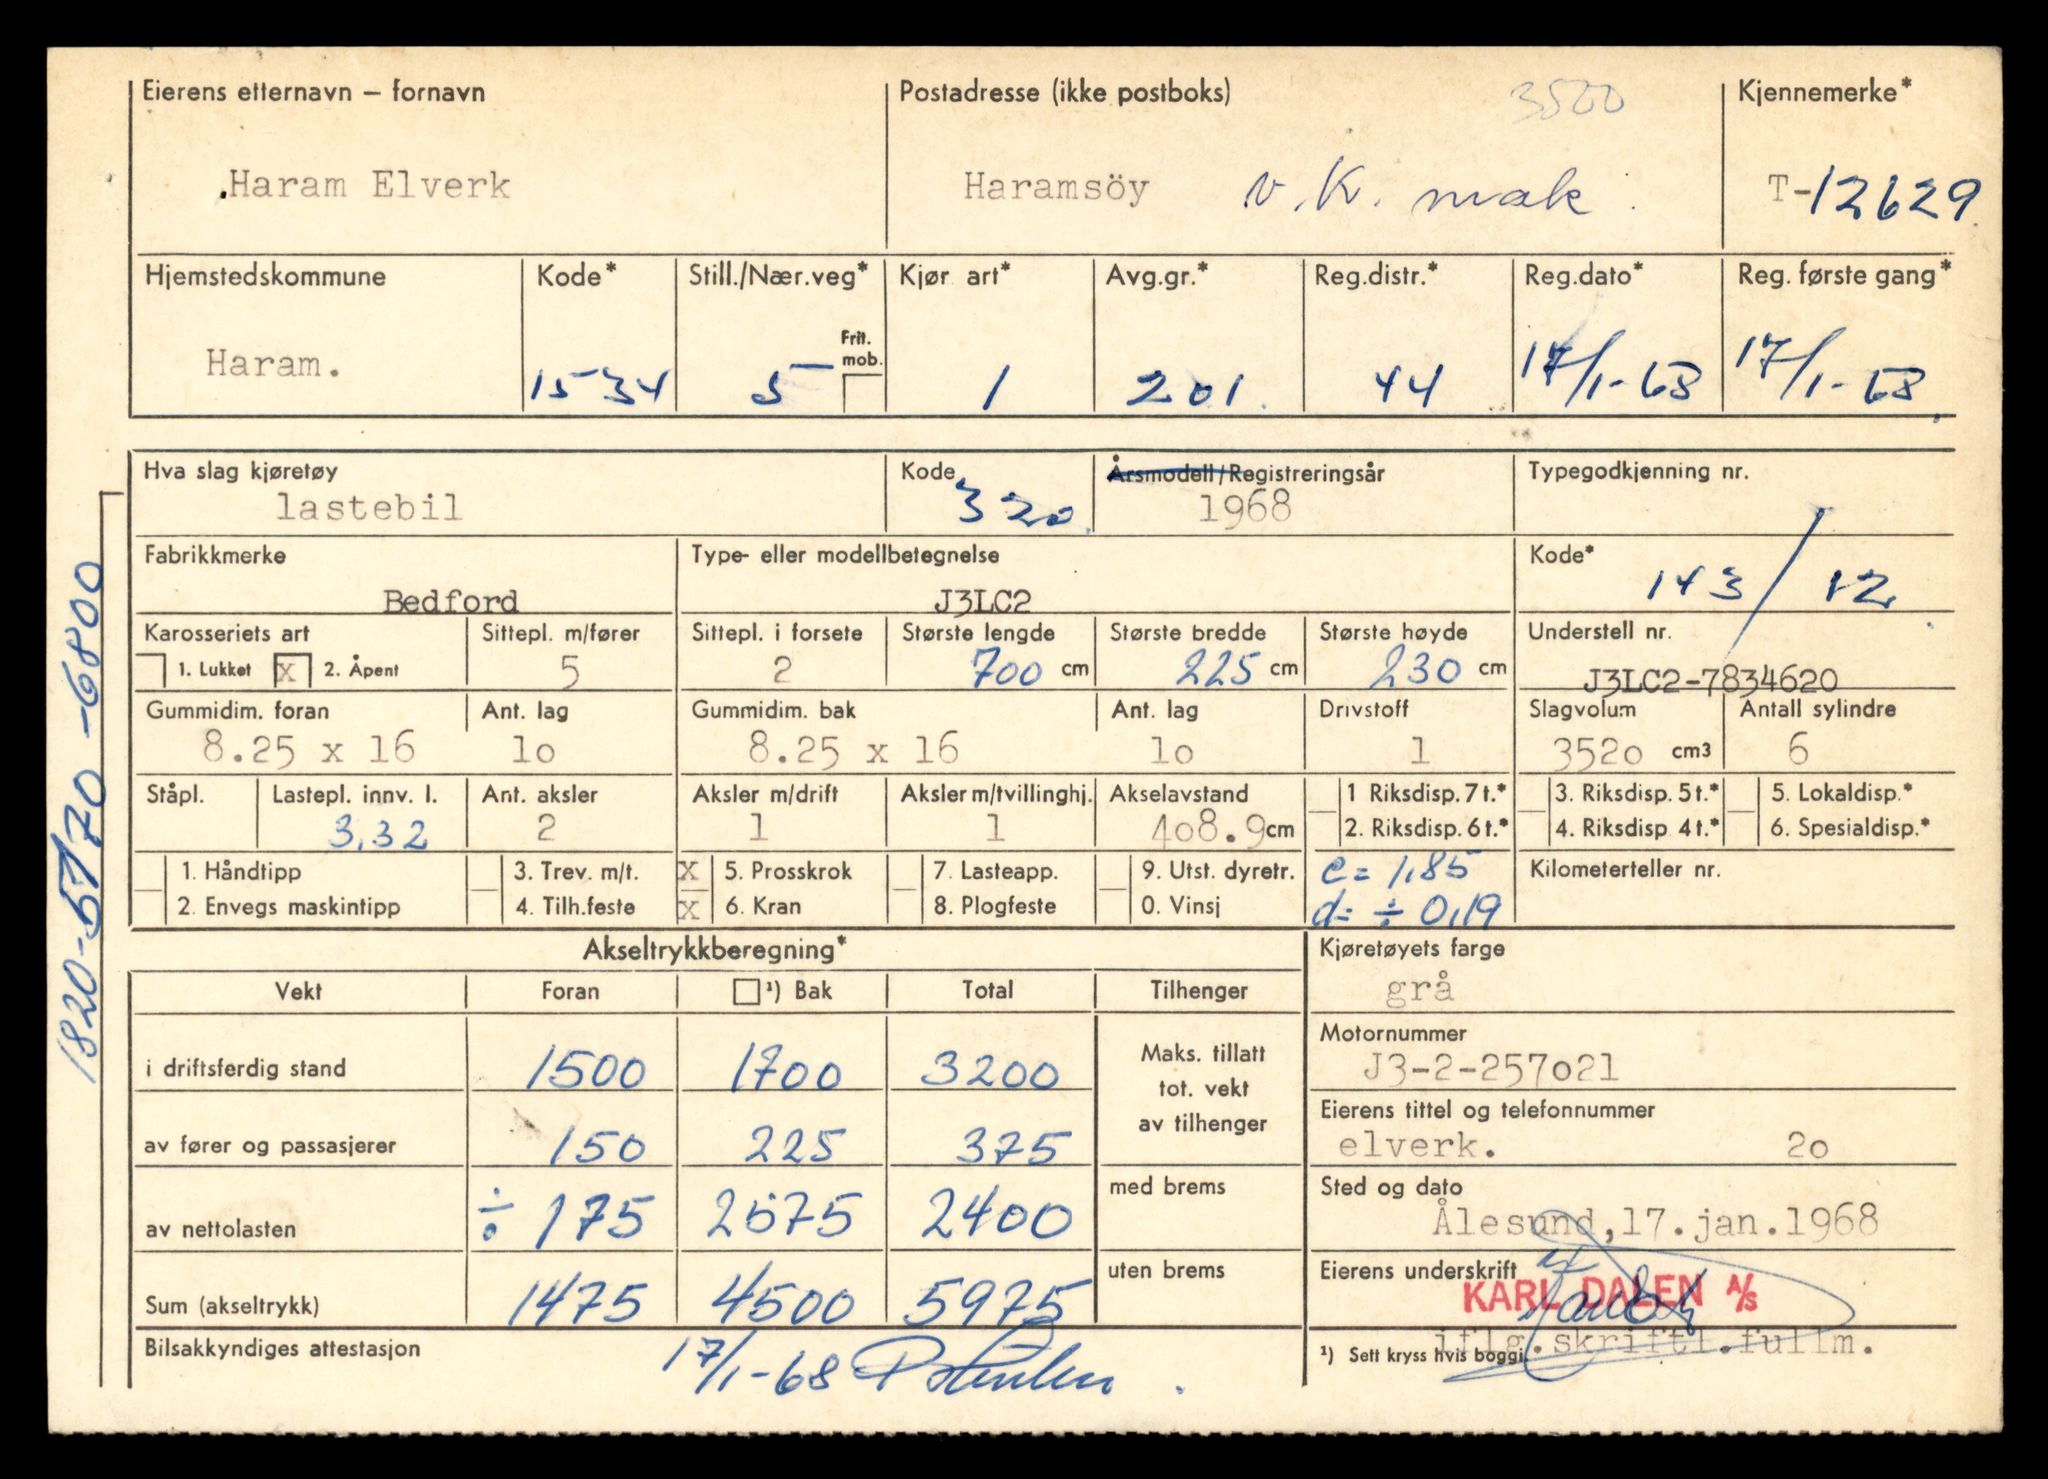 Eierens etternavn – fornavn Postadresse (ikke postboks) 3500 Kjennemerke*
.Haram Elverk Haramsöy v. K. mak. T-12629
Hjemstedskommune Kode* Still./Nær.veg* Kjør art* Avg.gr.* Reg.distr.* Reg.dato* Reg. første gang*
Frit. mob.
Haram. 1534 5 1 201. 44 17/1-68 17/1-68.
Hva slag kjøretøy Kode Årsmodell/Registreringsår Typegodkjenning nr.
lastebil 320 1968
Fabrikkmerke Type- eller modellbetegnelse Kode*
Bedford J3LC2 143 / 12
Karosseriets art Sittepl. m/fører Sittepl. i forsete Største lengde Største bredde Største høyde Understell nr.
1. Lukket x 2. Åpent 5 2 700 cm 225 cm 230 cm J3LC2-7834620
Gummidim. foran Ant. lag Gummidim. bak Ant. lag Drivstoff Slagvolum Antall sylindre
8.25 x 16 10 8.25 x 16 10 1 3520 cm3 6
Ståpl. Lastepl. innv. l. Ant. aksler Aksler m/drift Aksler m/tvillinghj. Akselavstand 1 Riksdisp. 7 t.* 3. Riksdisp. 5 t.* 5. Lokaldisp.*
3,32 2 1 1 408.9 cm 2. Riksdisp. 6 t.* 4. Riksdisp. 4 t.* 6. Spesialdisp.*
1. Håndtipp 3. Trev. m/t. x 5. Prosskrok 7. Lasteapp. 9. Utst. dyretr. c = 1,85 Kilometerteller nr.
2. Envegs maskintipp 4. Tilh.feste x 6. Kran 8. Plogfeste 0. Vinsj d = ÷ 0,19
Akseltrykkberegning* Kjøretøyets farge
Vekt Foran ¹) Bak Total Tilhenger grå
i driftsferdig stand 1500 1700 3200 Maks. tillatt tot. vekt av tilhenger
Motornummer
J3-2-257021
av fører og passasjerer 150 225 375
Eierens tittel og telefonnummer
elverk. 20
av nettolasten ÷ 175 2575 2400 med brems
Sted og dato
Ålesund, 17.jan.1968
Sum (akseltrykk) 1475 4500 5975 uten brems
Eierens underskrift
KARL DALEN A/S
iflg.skriftl.fullm.
Bilsakkyndiges attestasjon 17/1-68
¹) Sett kryss hvis boggi.
1820-5170-6800